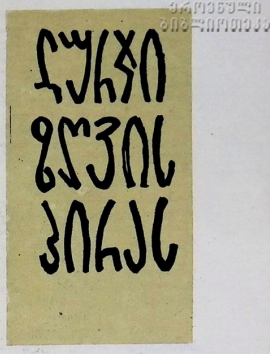 ეროვნული
ბიბლიოთეკა
ლურჯი
ზღვის
პირას